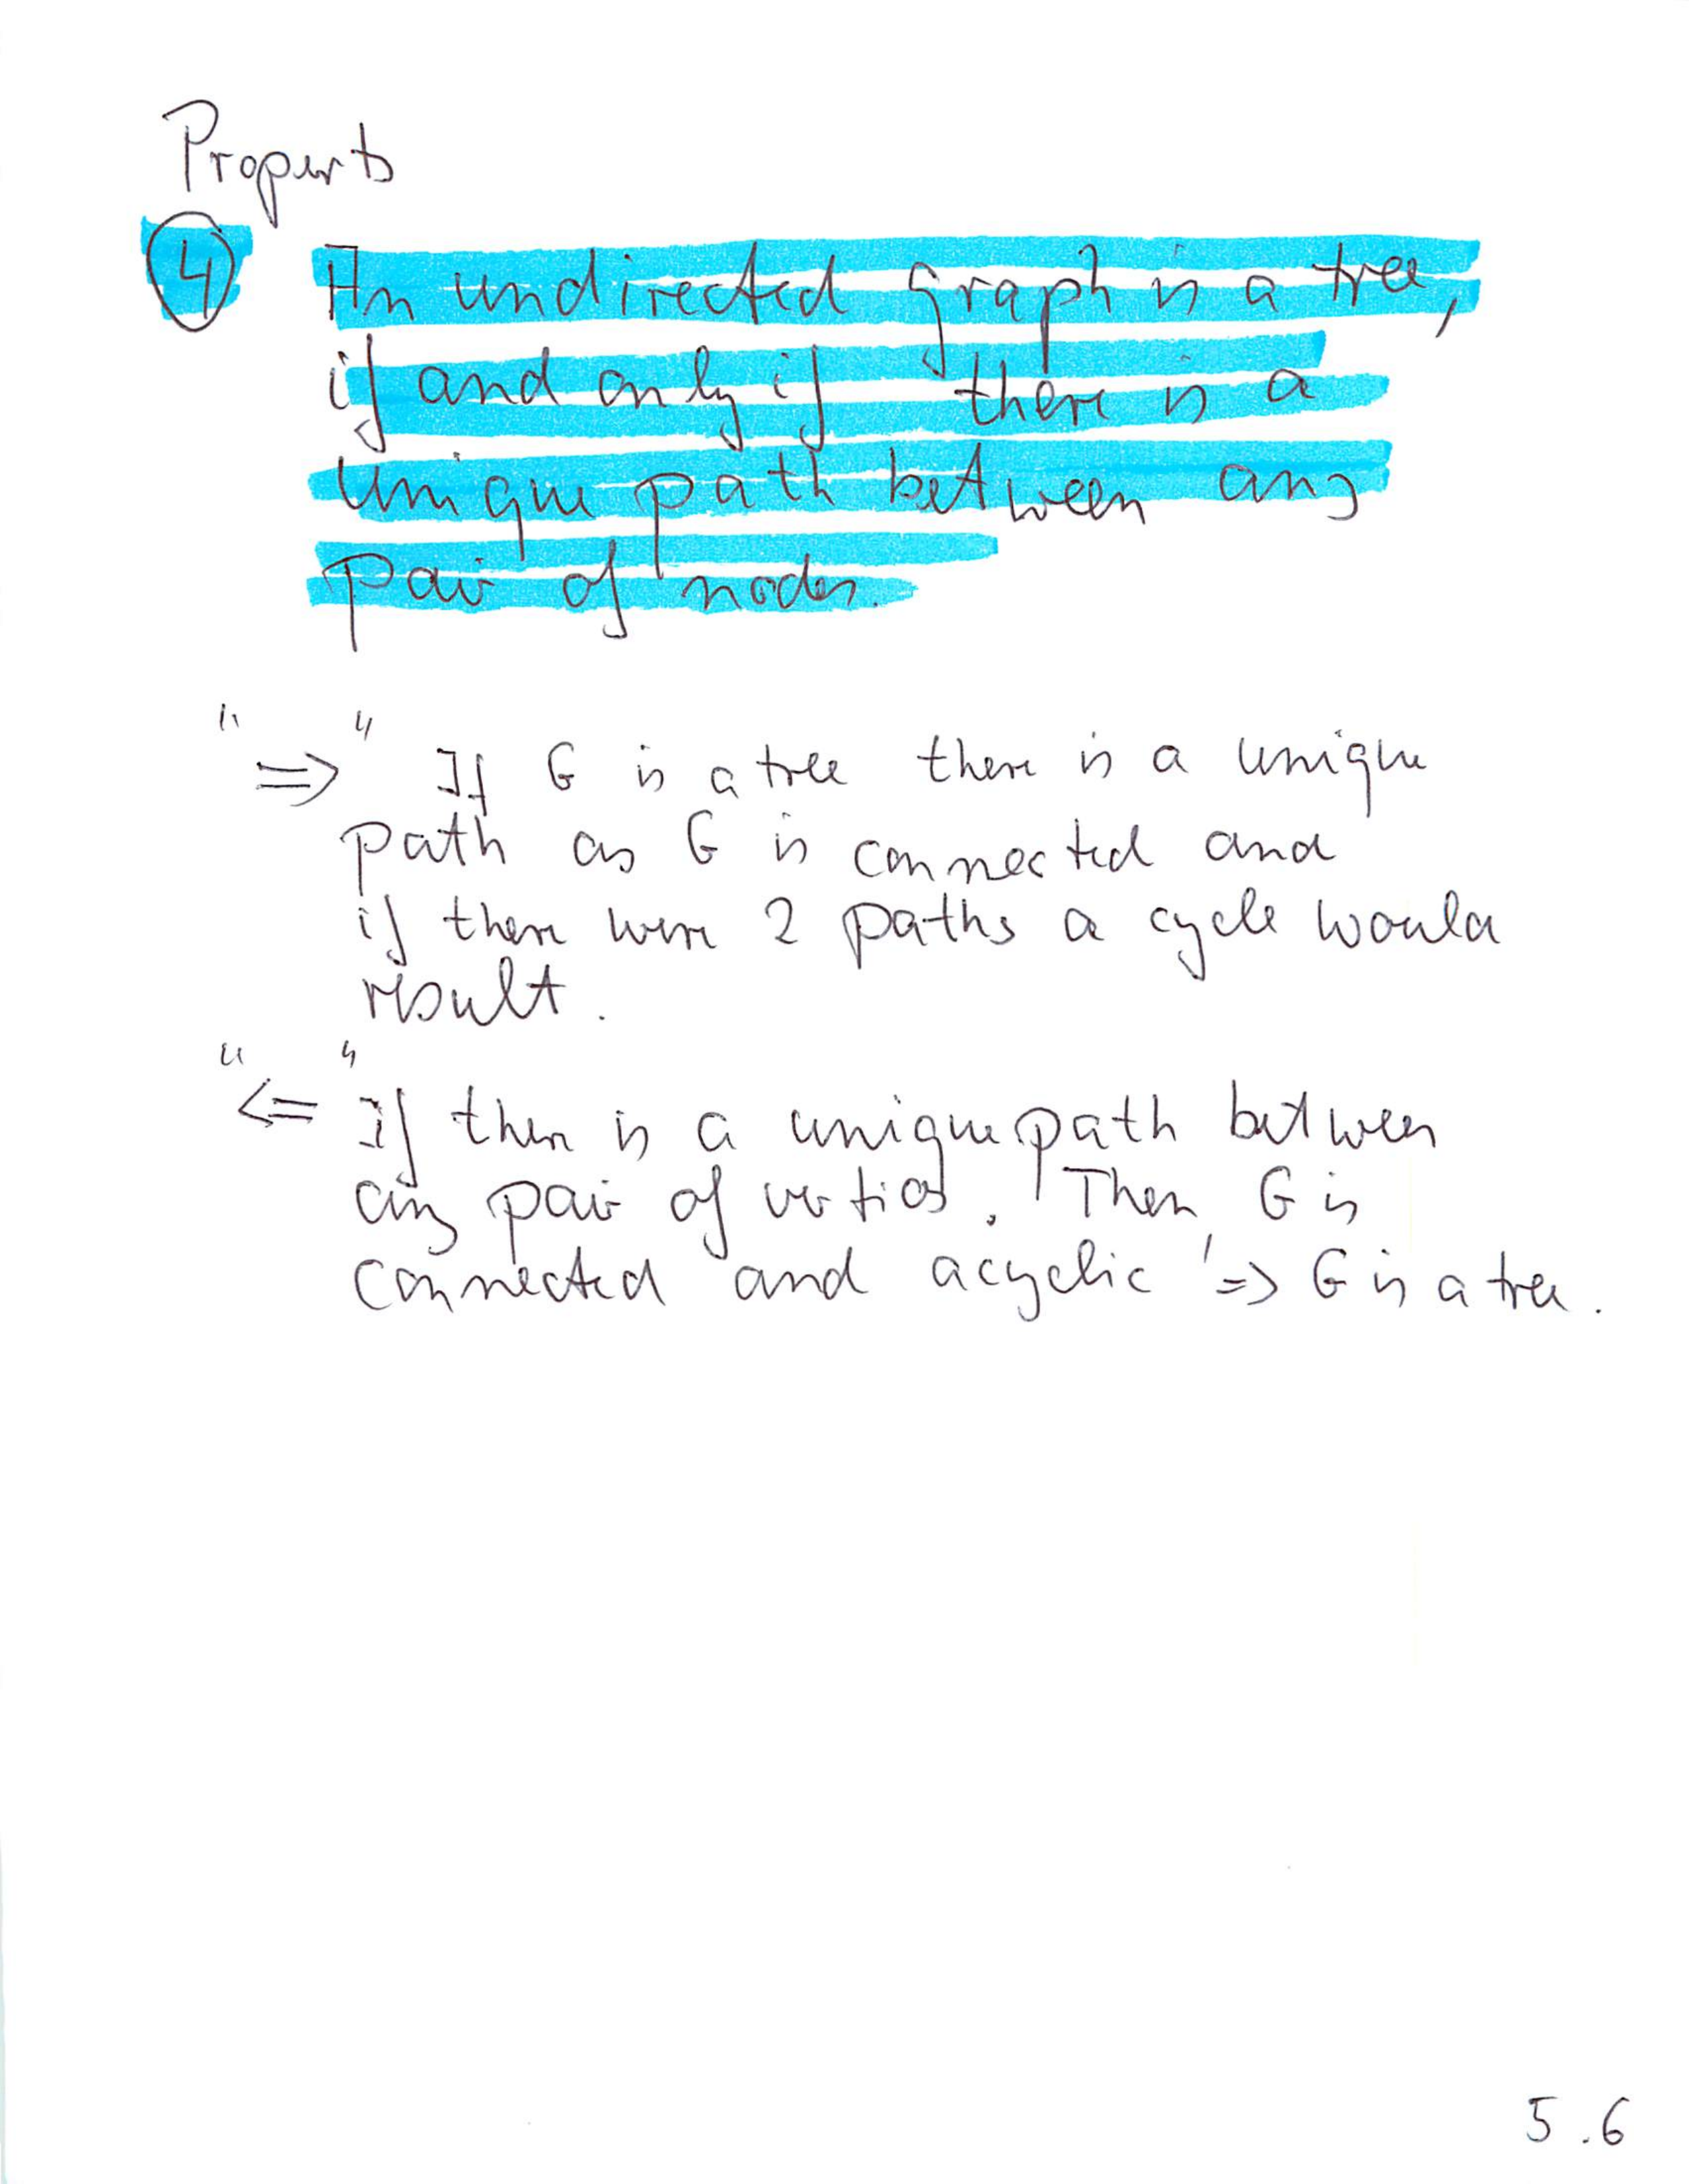 Property
④ An undirected graph is a tree,
if and only if there is a
unique path between any
pair of nodes.
"⇒" If G is a tree there is a unique
path as G is connected and
if there were 2 paths a cycle would
result.
"⇐" If there is a unique path between
any pair of vertices. Then, G is
connected and acyclic ⇒ G is a tree.
5.6